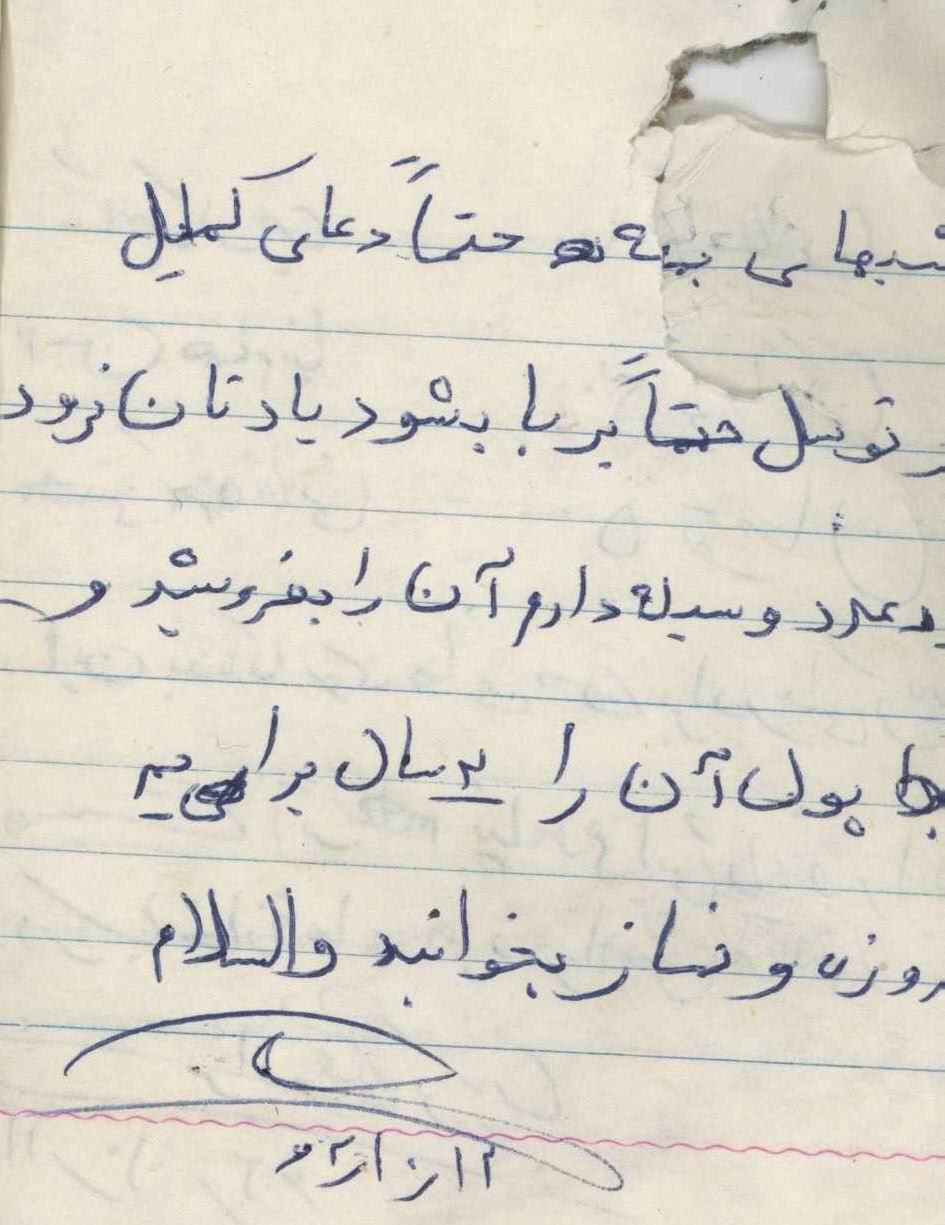 شبهای حتماً دعای کمیل
توسل حتماً بر پا بشود یادتان نرود
وسیله دارم آن را بفروشید و
با پول آن را یه سال برای یه
روزه و نماز بخوانید والسلام